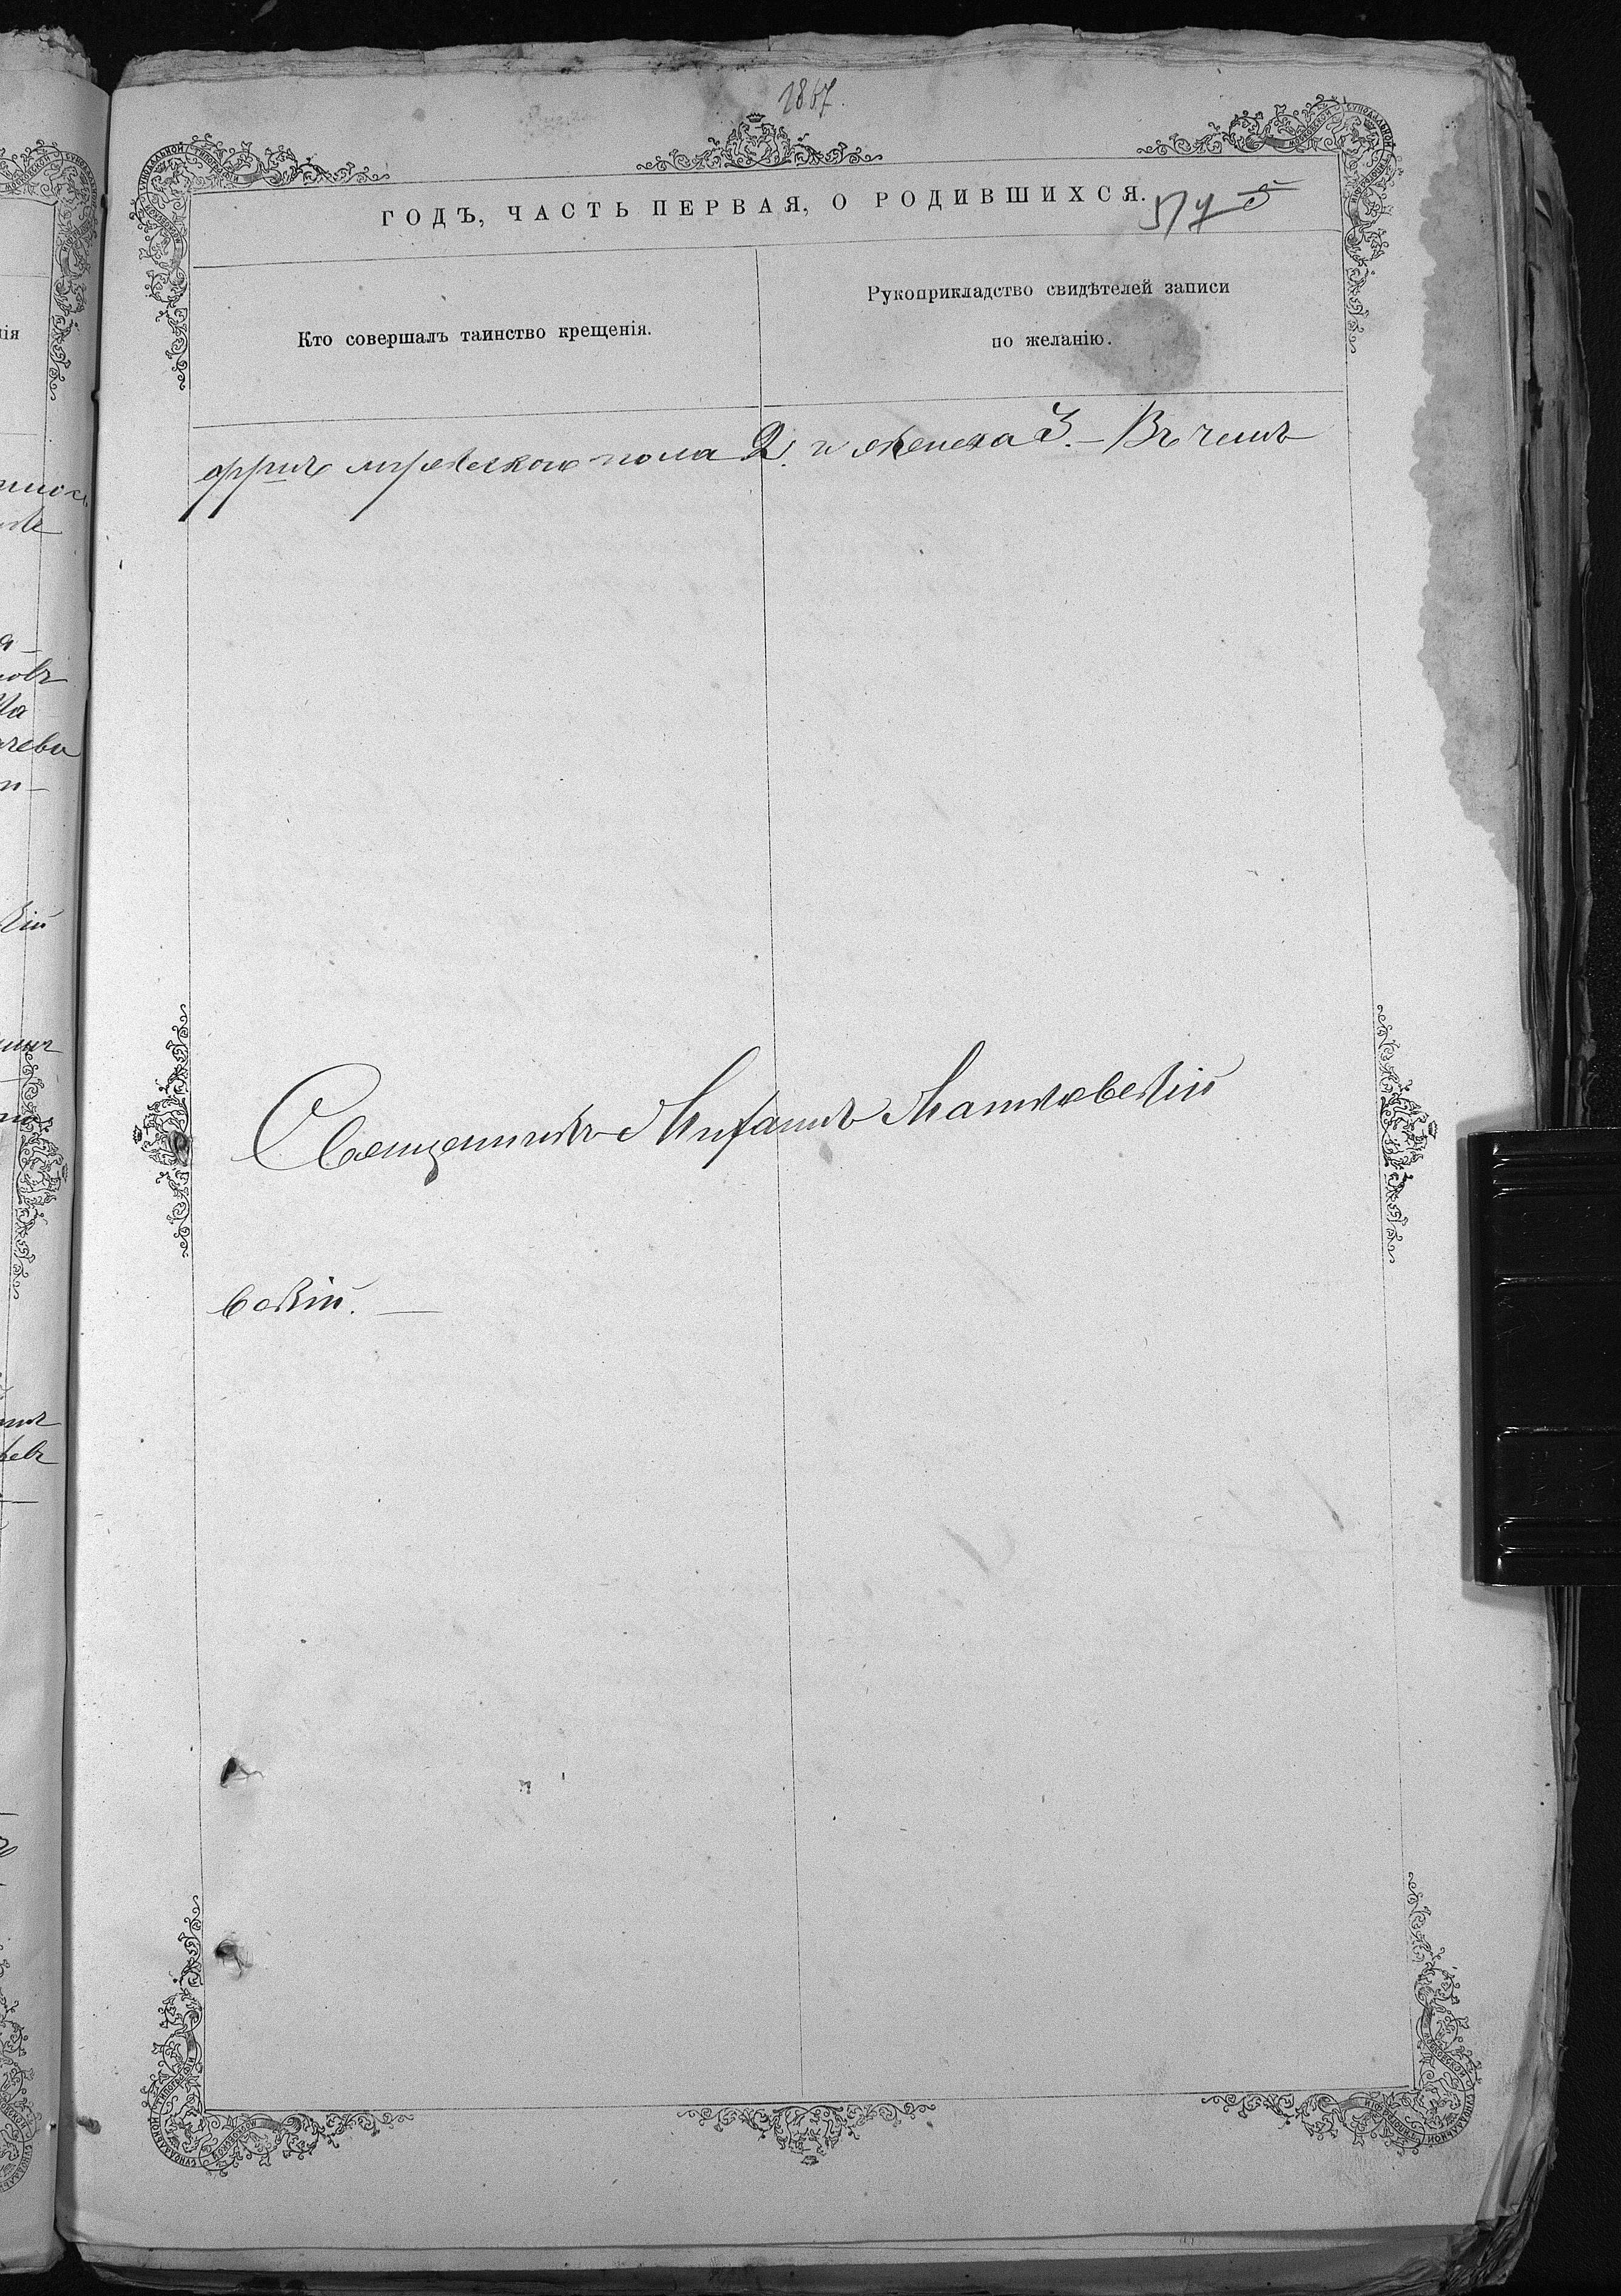 1867.
ГОДЪ, ЧАСТЬ ПЕРВАЯ, О РОДИВШИХСЯ.
Кто совершалъ таинство крещенія.
Рукоприкладство свидѣтелей записи
по желанію.
мужескаго пола 2. и женска 3. – Въ чемъ
Священникъ Михаилъ Маньковскій
вскій. —